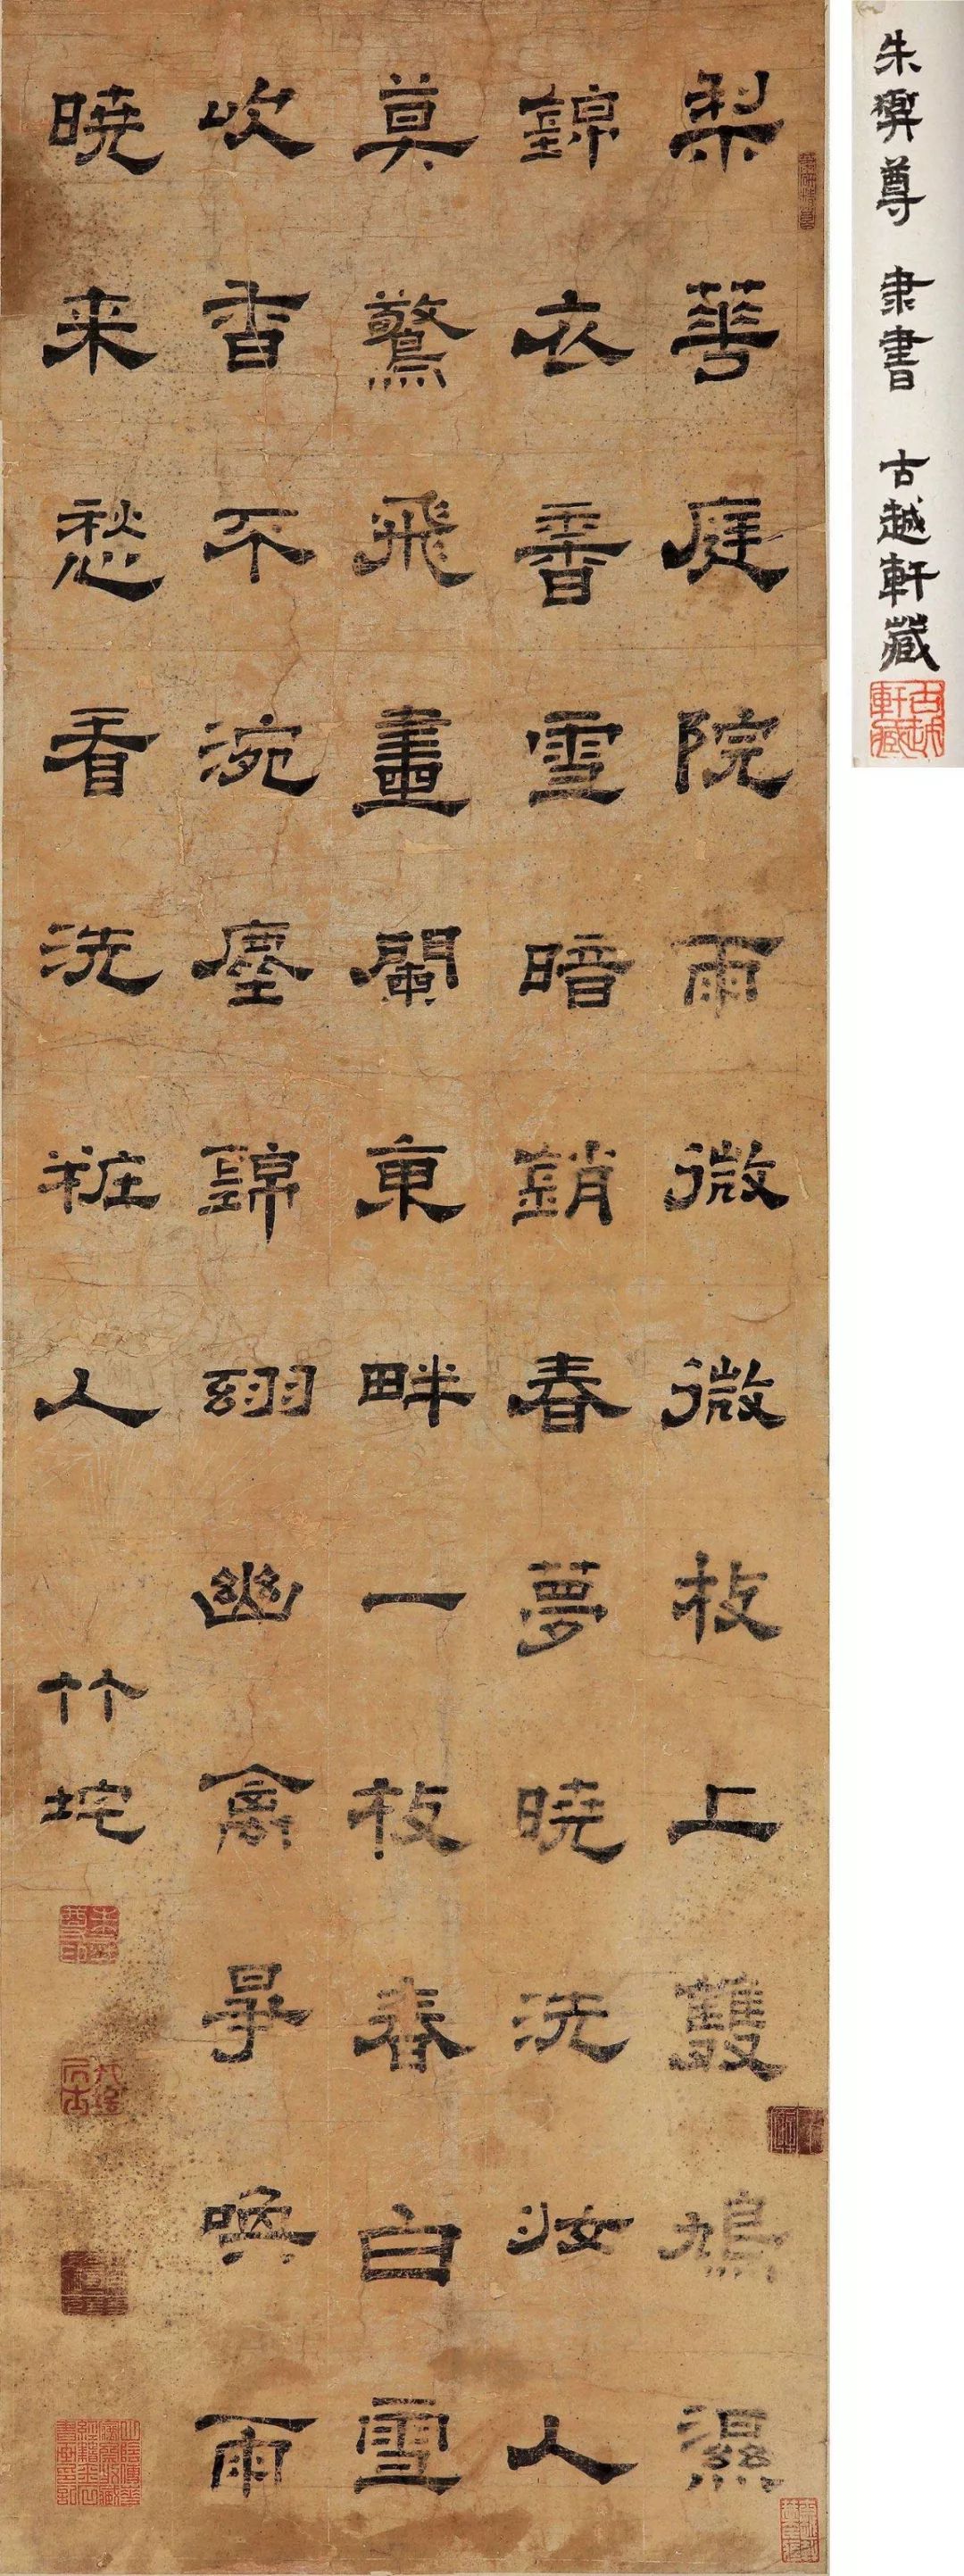 朱彝尊 隸書 古越軒藏
古越軒藏
梨華庭院雨微微枝上雙鳩濕
錦衣香雪暗銷春夢曉洗妝人
莫驚飛畫闌東畔一枝春白雪
吹香不涴塵錦幽禽喚雨
曉来愁看洗粧人
竹垞